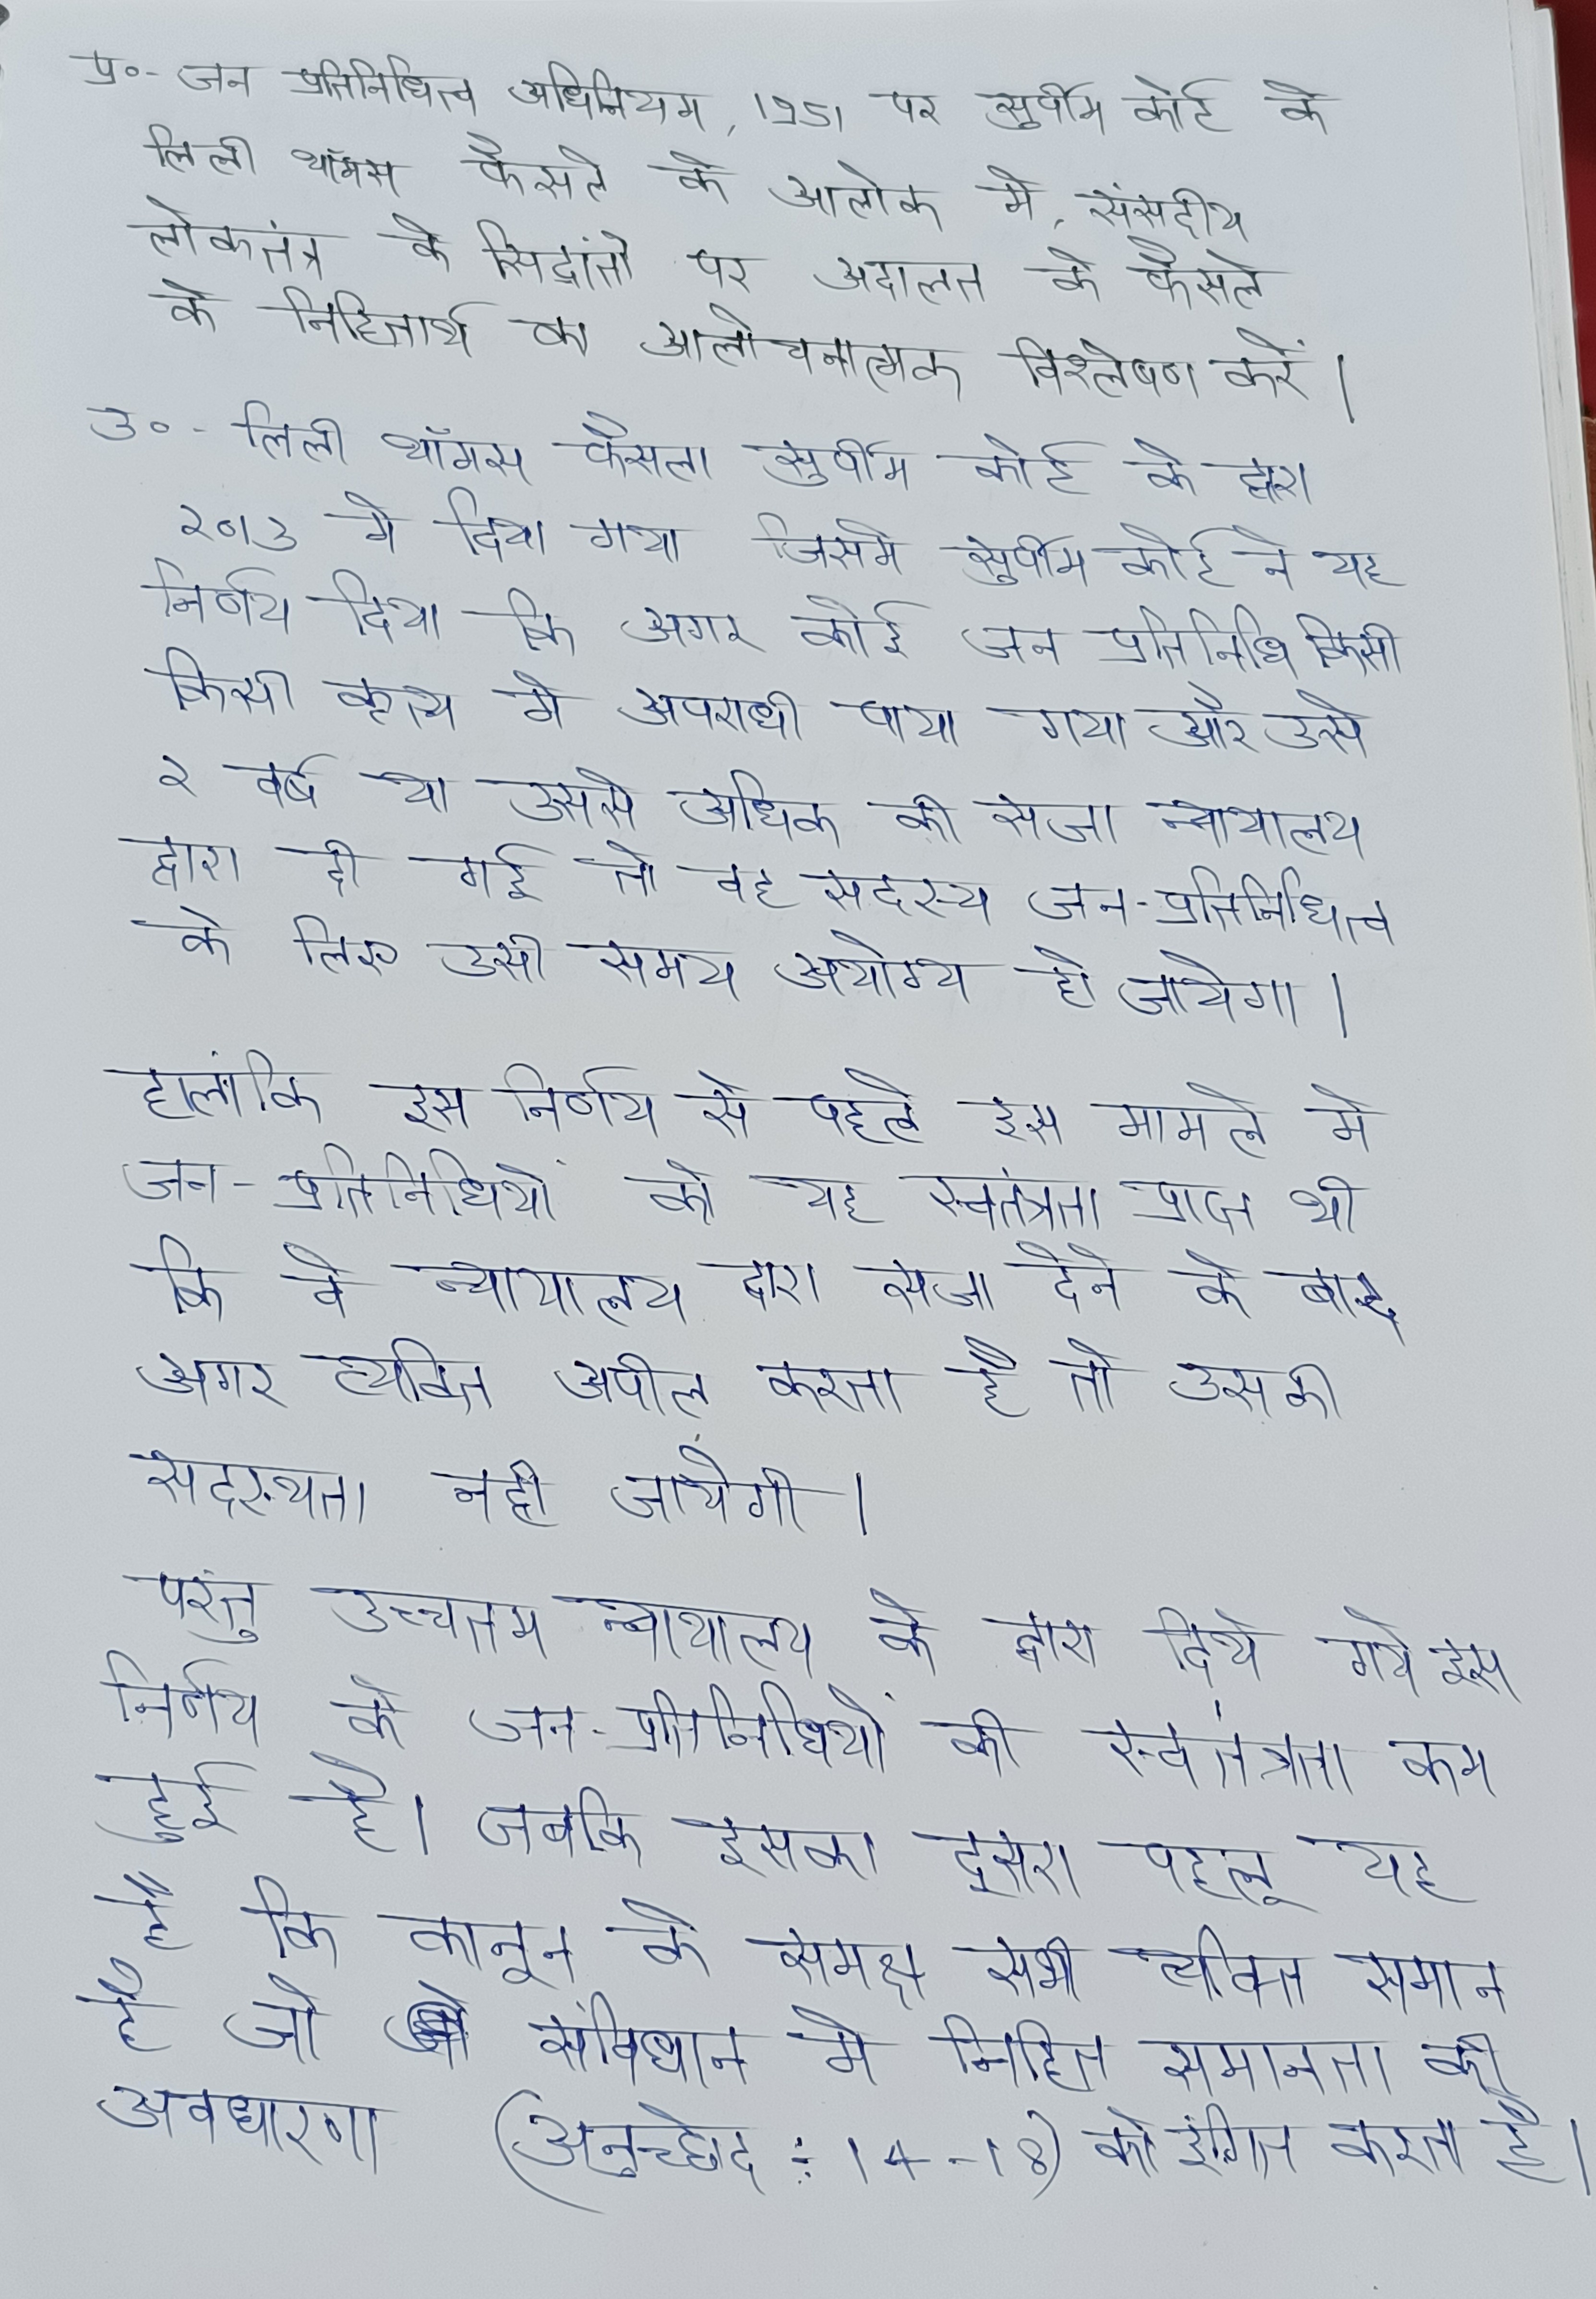 प्र०- जन प्रतिनिधित्व अधिनियम, 1951 पर सुप्रीम कोर्ट के
लिली थॉमस फैसले के आलोक में, संसदीय
लोकतंत्र के सिद्धांतों पर अदालत के फैसले
के निहितार्थ का आलोचनात्मक विश्लेषण करें।
उ०- लिली थॉमस फैसला सुप्रीम कोर्ट के द्वारा
2013 मे दिया गया जिसमे सुप्रीम कोर्ट ने यह
निर्णय दिया कि अगर कोई जन प्रतिनिधि किसी
किसी कृत्य मे अपराधी पाया गया और उसे
2 वर्ष या उससे अधिक की सजा न्यायालय
द्वारा दी गई तो वह सदस्य जन-प्रतिनिधित्व
के लिए उसी समय अयोग्य हो जायेगा।
हालांकि इस निर्णय से पहले इस मामले मे
जन-प्रतिनिधियों को यह स्वतंत्रता प्राप्त थी
कि वे न्यायालय द्वारा सजा देने के बाद
अगर व्यक्ति अपील करता है तो उसकी
सदस्यता नही जायेगी।
परंतु उच्चतम न्यायालय के द्वारा दिये गये इस
निर्णय के जन-प्रतिनिधियों की स्वतंत्रता कम
हुई है। जबकि इसका दूसरा पहलू यह
है कि कानून के समक्ष सभी व्यक्ति समान
है जो संविधान मे निहित समानता की
अवधारणा (अनुच्छेद ÷ 14-18) को इंगित करता है।